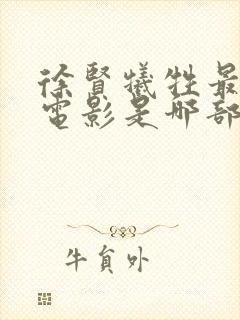 徐賢犧牲最
電影是哪部
牛負外